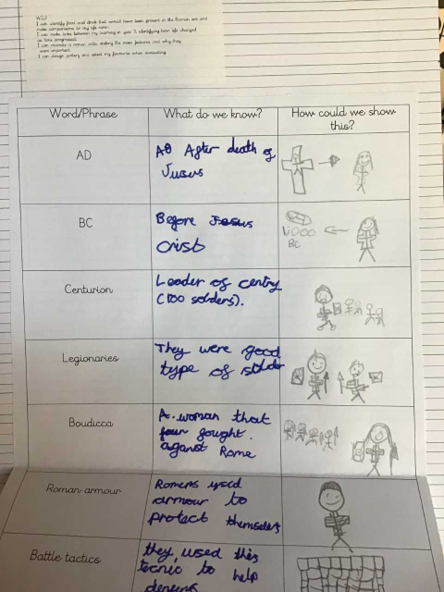 WILF
I can identify food and drink that would have been present in the Roman era and
make comparisons to my life now.
I can make links between my learning in year 3, identifying how life changed
as time progressed.
I can recreate a roman villa, stating the main features and why they
were important.
I can design pottery and select my favourite when evaluating.
Word/Phrase What do we know? How could we show
this?
AD
AD After death of
Jusus
BC
Before Jesus
Crist
1000
BC
Centurion
Leader of centry
(100 solders).
Legionaries
They were good
type of
Boudicca
A woman that
fought
against Rome
Roman armour
Romens used
armour to
protect themselves
Battle tactics
they used this
tecnic to help